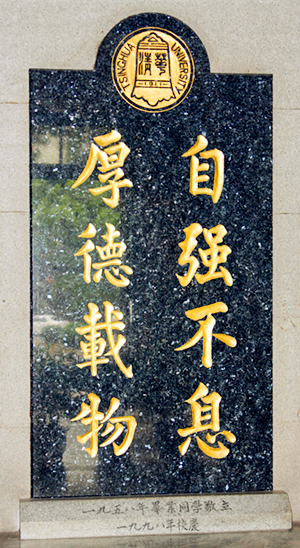 TSINGHUA UNIVERSITY
清華
1911
自强不息
厚德載物
一九五八年畢業同學敬立
一九九八年校慶